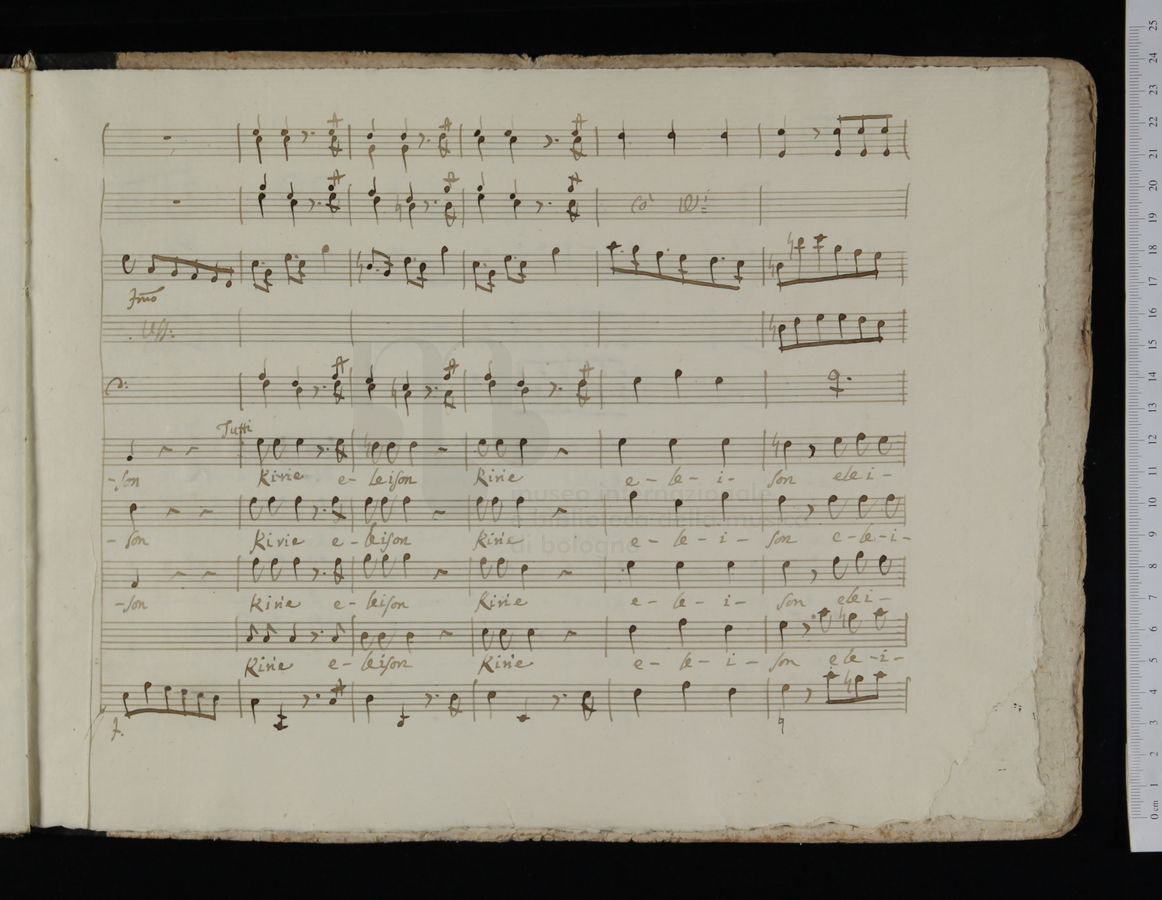 Tutti
-son Kirie e- leison Kirie e- le- i- son elei-
museo internazionale
e biblioteca della musica
-son Kirie e- leison Kirie e- le- i- son e-le-i-
di bologna
-son Kirie e- leison Kirie e- le- i- son elei-
Kirie e- leison Kirie e- le- i- son ele-i-
f.
25
24
23
22
21
20
19
18
17
16
15
14
13
12
11
10
9
8
7
6
5
4
3
2
1
0 cm